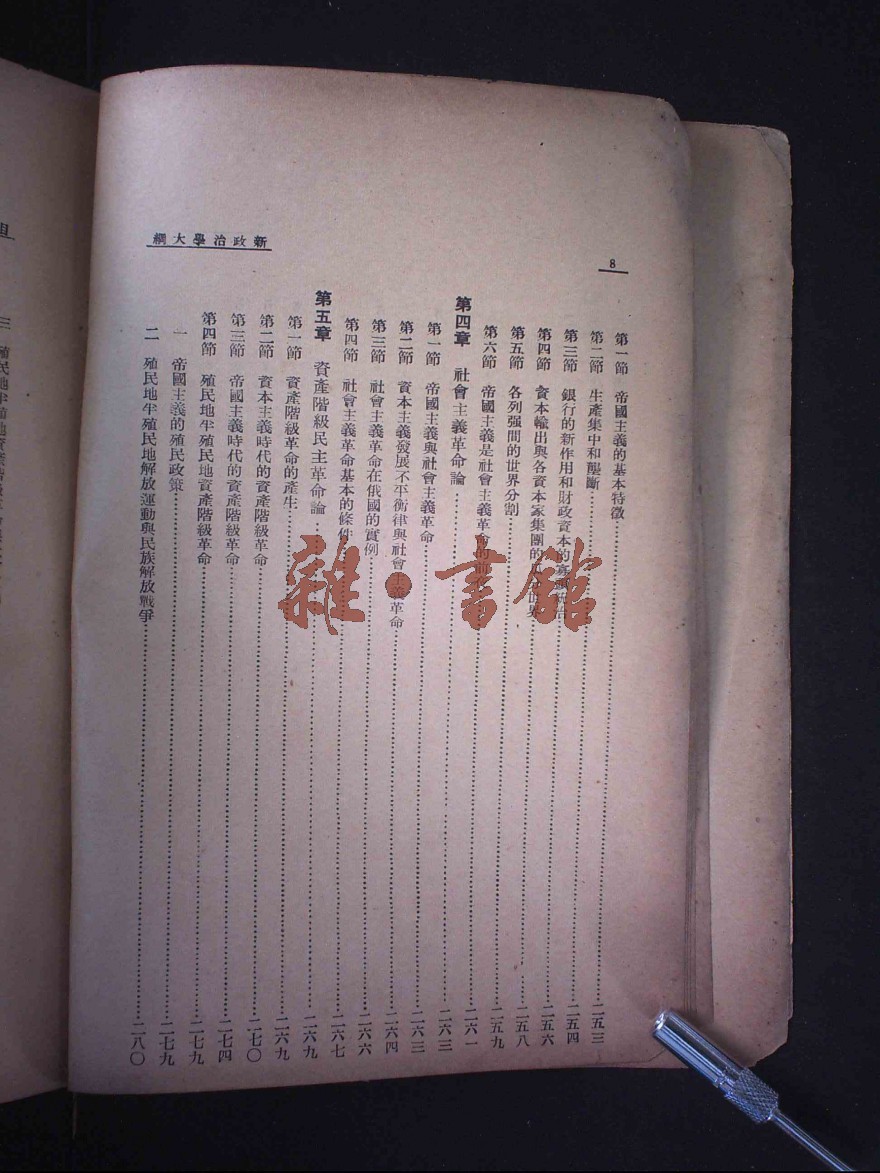 新政治學大綱
8
第一節 帝國主義的基本特徵……二五三
第二節 生產集中和壟斷……二五四
第三節 銀行的新作用和財政資本的寡頭統治……二五六
第四節 資本輸出與各資本家集團的瓜分世界……二五八
第五節 各列强間的世界分割……二五九
第六節 帝國主義是社會主義革命的前夜……二六一
第四章 社會主義革命論……二六三
第一節 帝國主義與社會主義革命……二六三
第二節 資本主義發展不平衡律與社會主義革命……二六四
第三節 社會主義革命在俄國的實例……二六六
第四節 社會主義革命基本的條件……二六七
第五章 資產階級民主革命論……二六九
第一節 資產階級革命的產生……二六九
第二節 資本主義時代的資產階級革命……二七〇
第三節 帝國主義時代的資產階級革命……二七四
第四節 殖民地半殖民地資產階級革命……二七九
一 帝國主義的殖民政策……二七九
二 殖民地半殖民地解放運動與民族解放戰爭……二八〇
三 殖民地半殖民地資產階級革命
雜·書館